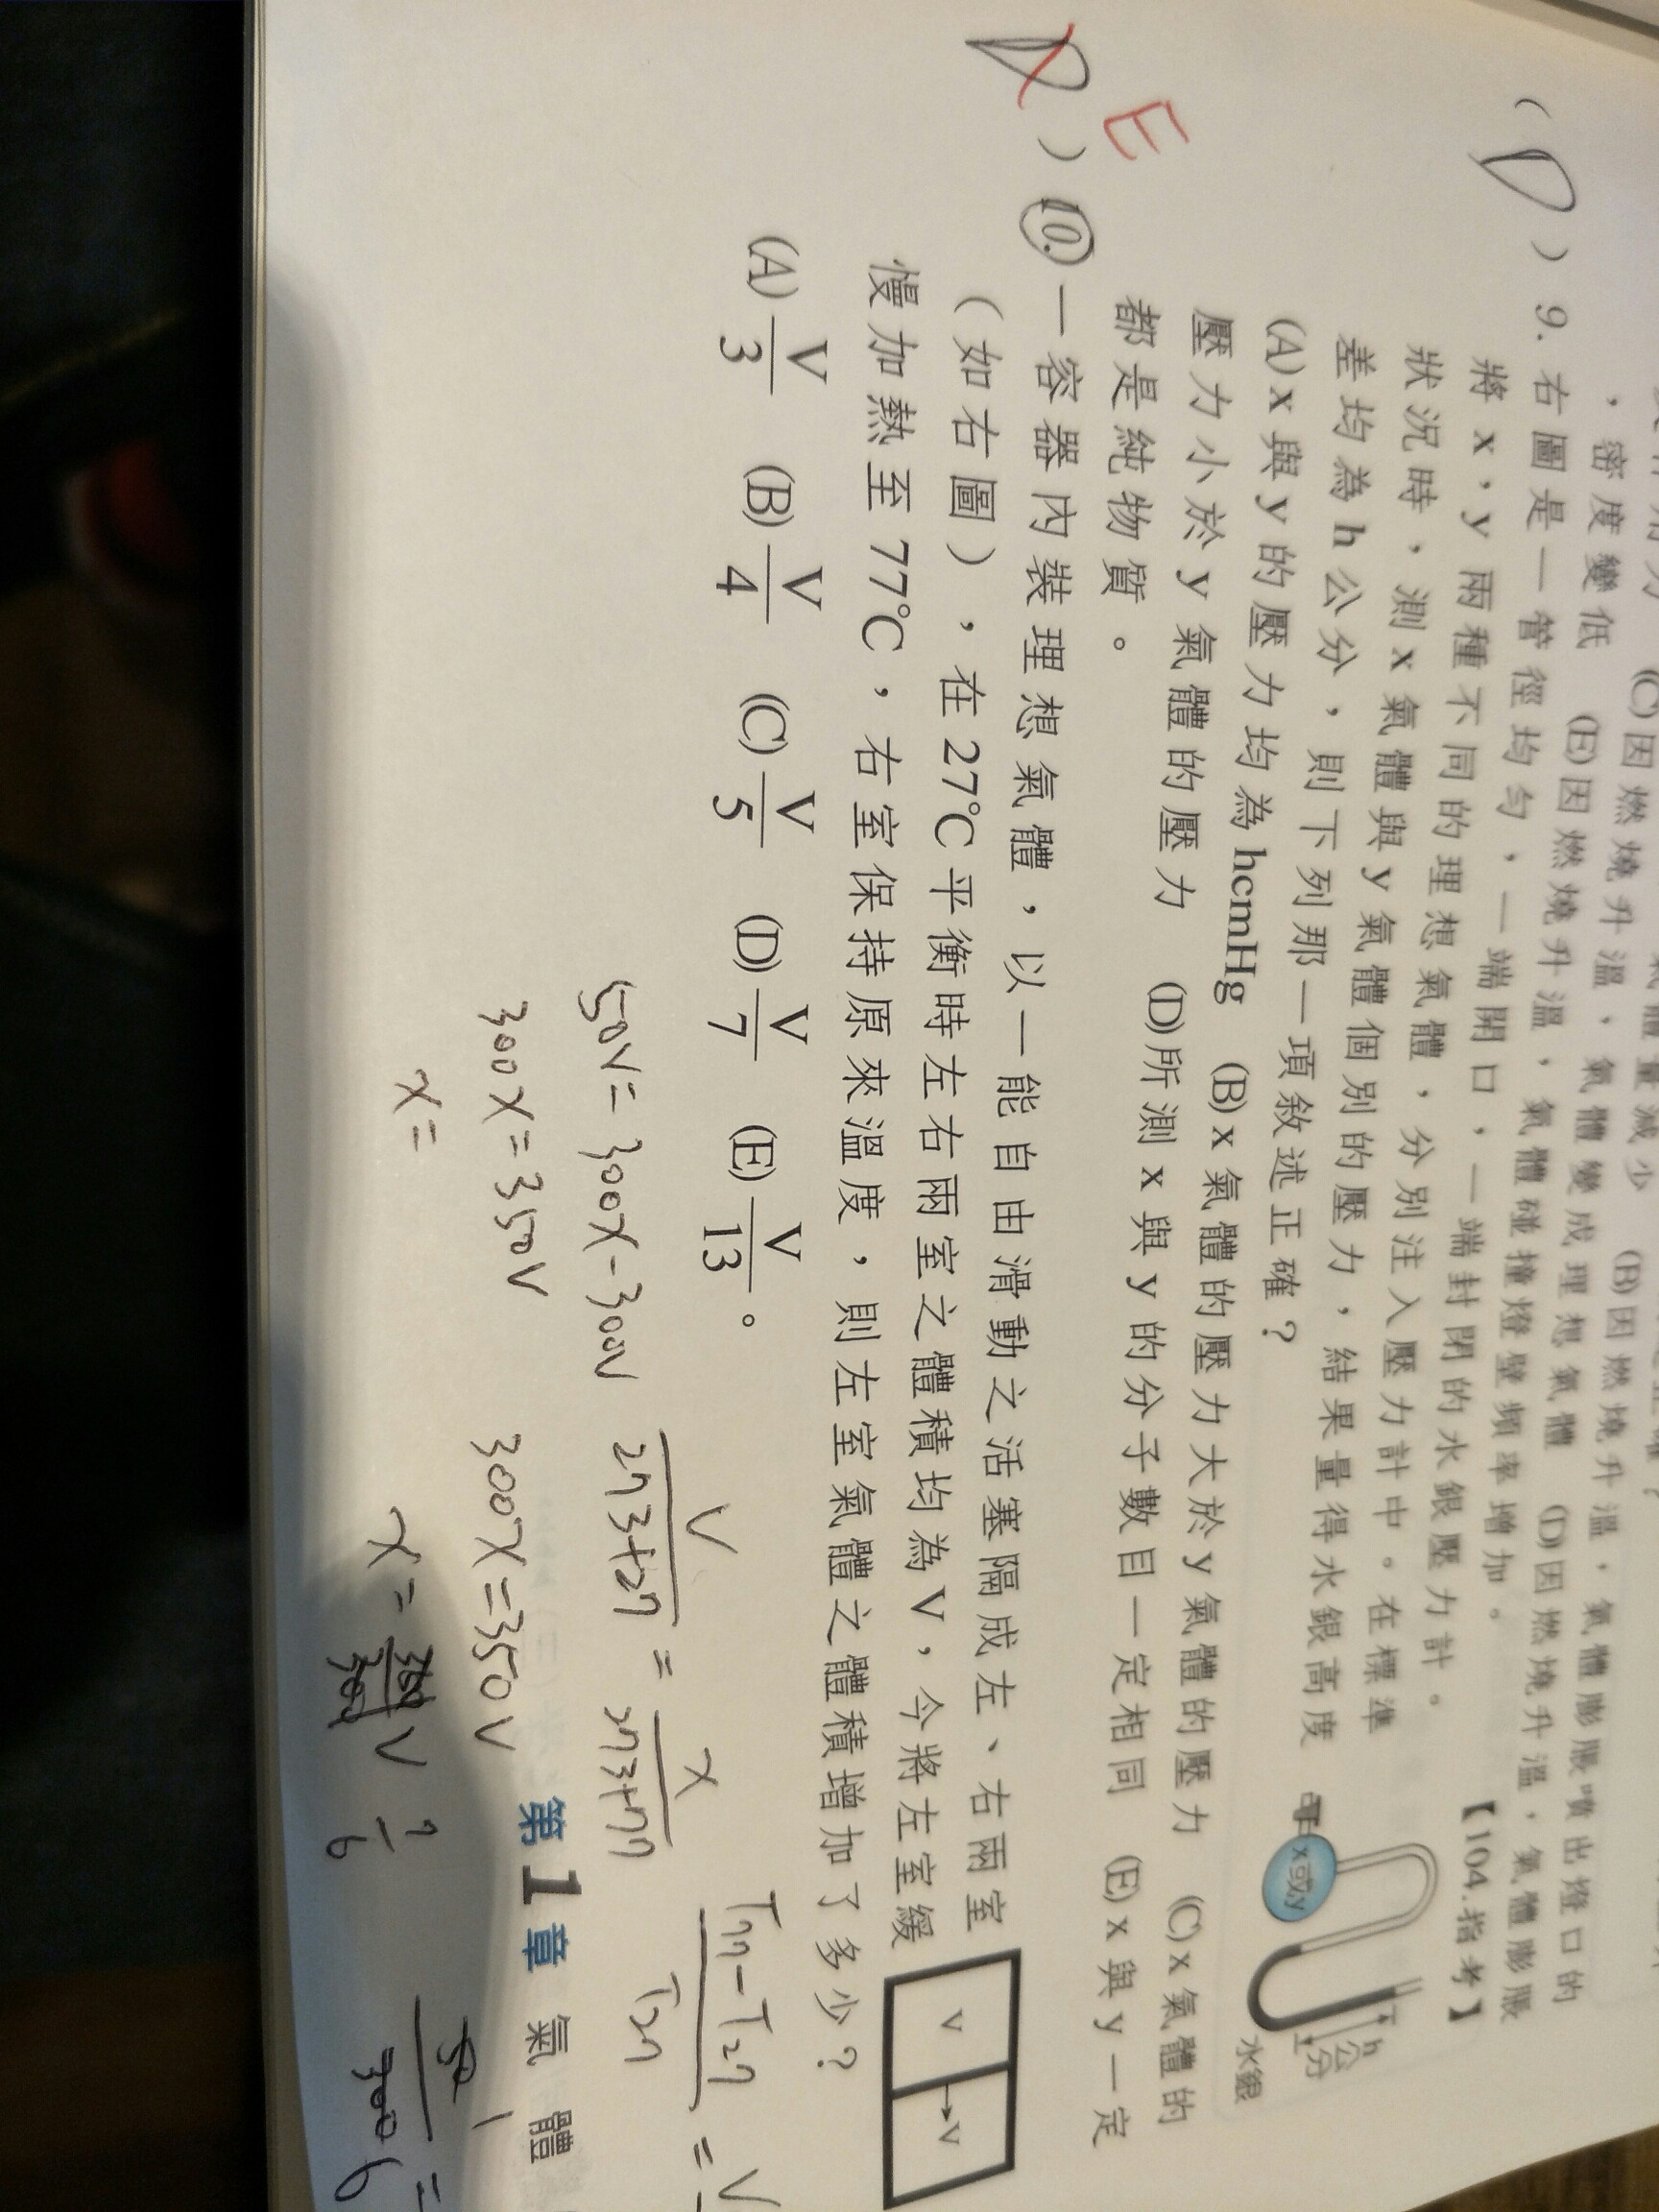 (C)因燃燒升溫,氣體膨脹噴出燈口的
氣體量減少 (B)因燃燒升溫,氣體膨脹
,密度變低 (E)因燃燒升溫,氣體變成理想氣體 (D)因燃燒升溫,氣體膨脹
氣體碰撞燈壁頻率增加。
【104.指考】
( D ) 9. 右圖是一管徑均勻,一端開口,一端封閉的水銀壓力計。
將 x,y 兩種不同的理想氣體,分別注入壓力計中。在標準
狀況時,測 x 氣體與 y 氣體個別的壓力,結果量得水銀高度
差均為 h 公分,則下列那一項敘述正確?
(A) x 與 y 的壓力均為 hcmHg (B) x 氣體的壓力大於 y 氣體的壓力 (C) x 氣體的
壓力小於 y 氣體的壓力 (D)所測 x 與 y 的分子數目一定相同 (E) x 與 y 一定
都是純物質。
x或y
h
公
分
水銀
E
D ) 10. 一容器內裝理想氣體,以一能自由滑動之活塞隔成左、右兩室
(如右圖),在 27℃平衡時左右兩室之體積均為 V,今將左室緩
慢加熱至 77℃,右室保持原來溫度,則左室氣體之體積增加了多少?
(A) V/3 (B) V/4 (C) V/5 (D) V/7 (E) V/13 。
V
V
50V = 300x - 300V
300x = 350V
x =
V/273+27 = x/273+77
300x = 350V
x = V 7/6
T77 - T27/T27 = V
第1章 氣體